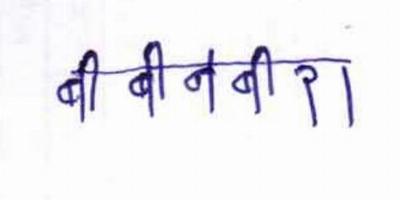 बीबीनबीरा